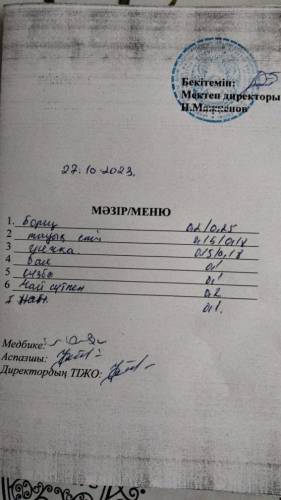 Бекітемін:
Мектеп директоры
27.10.2023.
МӘЗІР/МЕНЮ
1. борщ 0.2/0.25
2 тауық еті 0.15/0.18
3 гречка. 0.15/0.18
4 бал 0.1
5 0.1
6 Чай сүтпен 0.2
7 Нан. 0.1.
Медбике:
Аспазшы:
Директордың ТІЖО: